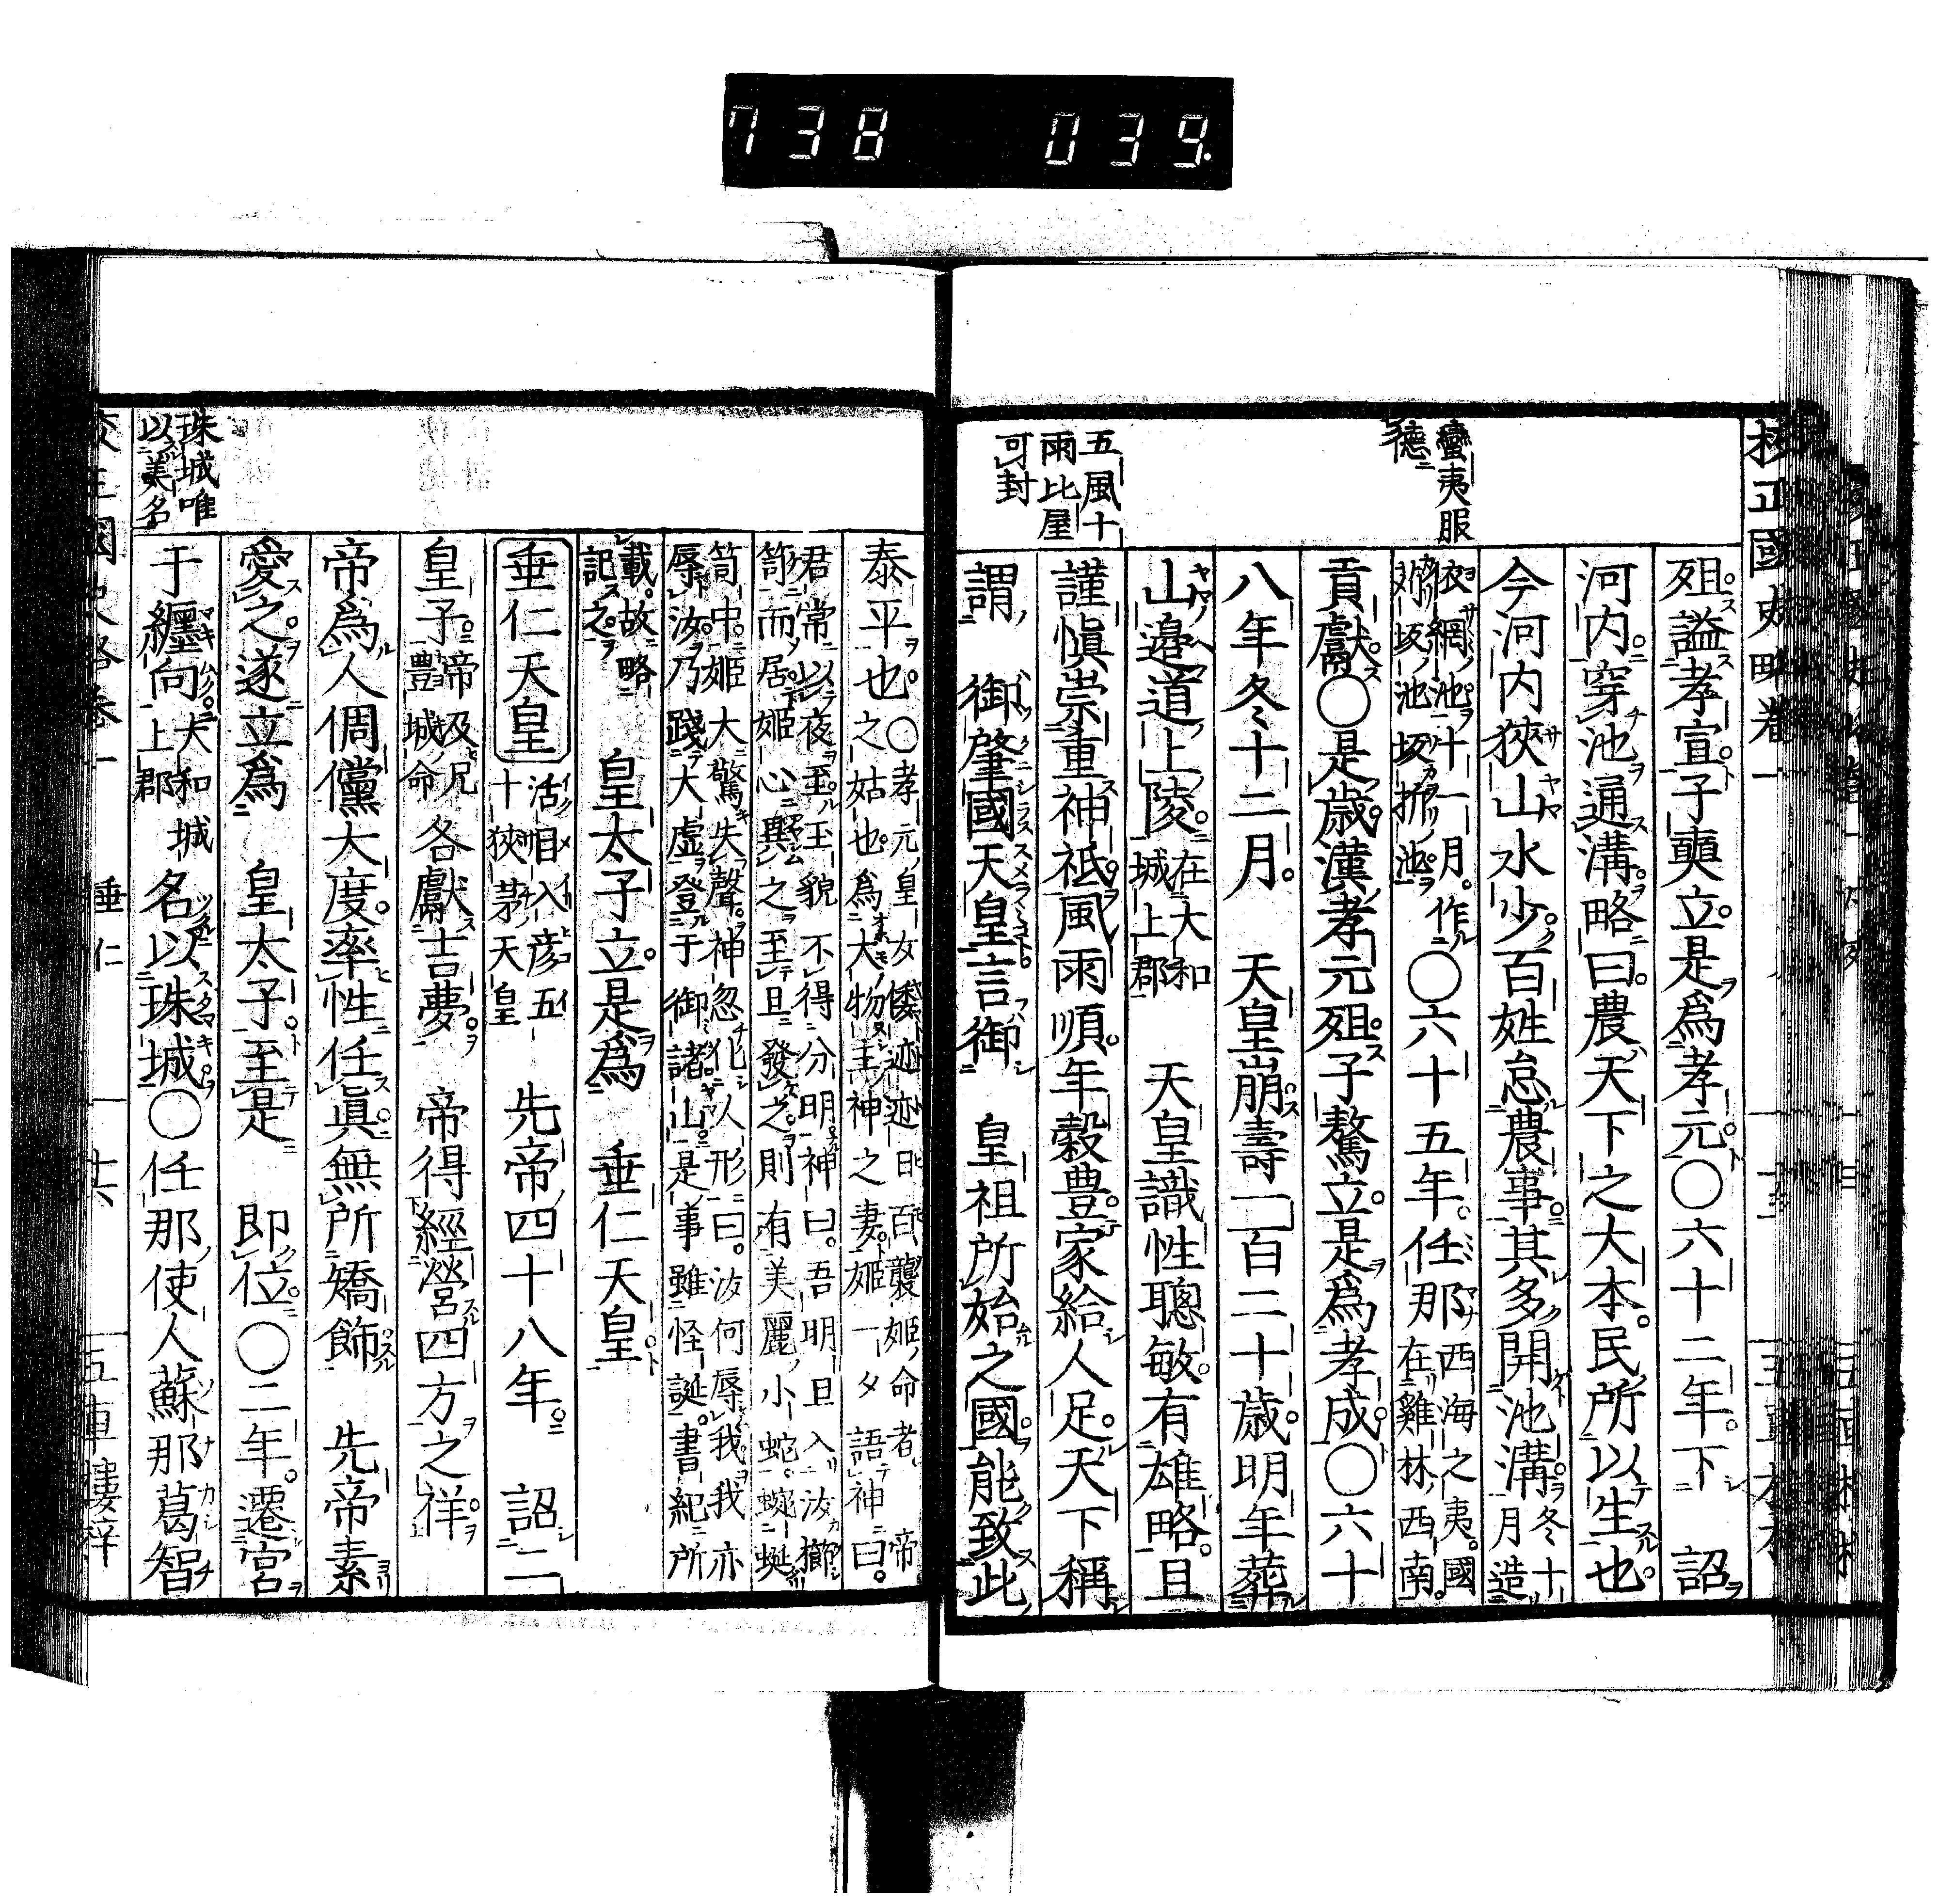 738 039.
校正國史略卷一
蠻夷服
德
五風十
雨比屋
可封
殂謚孝宣子奭立是爲孝元〇六十二年下 詔
河内穿池通溝略曰農天下之大本民所以生也
今河内狹山水少百姓怠農事其多開池溝冬十月造
依網池十一月作
坂池坂折池〇六十五年任那西海之夷國在雞林西南
貢獻〇是歳漢孝元殂子驁立是爲孝成〇六十
八年冬十二月 天皇崩壽一百二十歳明年葬
山邉道上陵在大和城上郡 天皇識性聰敏有雄略且
謹愼崇重神祇風雨順年穀豊家給人足天下稱
謂 御肇國天皇言御 皇祖所始之國能致此
珠城唯
以美名
泰平也〇孝元皇女倭迹迹日百襲姫命者帝
之姑也爲大物主神之妻姫一夕語神曰
君常以夜至玉貌不得分明神曰吾明旦入汝櫛
笥而居姫心異之至旦發之則有美麗小蛇蜿蜒
笥中姫大驚失聲神忽化人形曰汝何辱我我亦
辱汝乃踐大虚登于御諸山是事雖怪誕書紀所
載故略
記之 皇太子立是爲 垂仁天皇
垂仁天皇活目入彦五十狹茅天皇 先帝四十八年 詔二
皇子帝及兄豊城命各獻吉夢 帝得經營四方之祥
帝爲人倜儻大度率性任眞無所矯飾 先帝素
愛之遂立爲 皇太子至是 即位〇二年遷宮
于纏向大和城上郡名以珠城〇任那使人蘇那葛智
垂仁 十六 五車樓梓